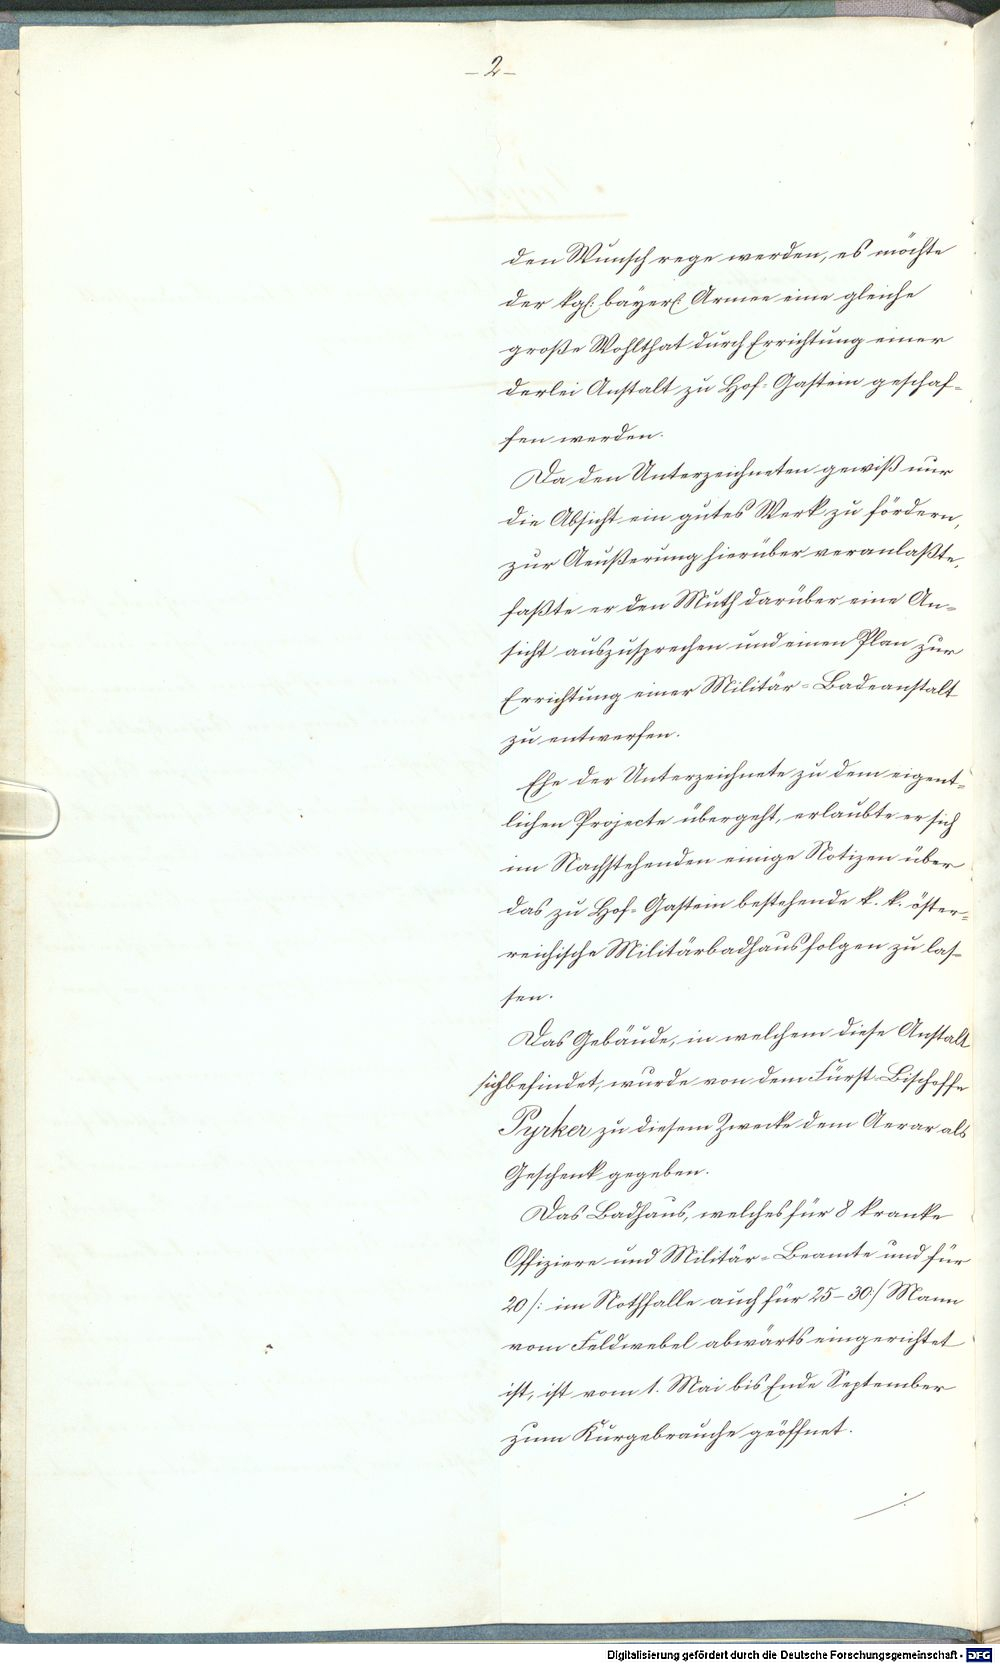 - 2 -
den Wunsch rege werden, es möchte
der kgl: bayer: Armee eine gleiche
große Wohlthat durch Errichtung einer
derlei Anstalt zu Hof-Gastein geschaf-
fen werden.
Da den Unterzeichneten gewiß nur
die Absicht ein gutes Werk zu fördern,
zur Aeußerung hierüber veranlaßte,
faßte er den Muth darüber eine An-
sicht auszusprechen und einen Plan zur
Errichtung einer Militär-Badeanstalt
zu entwerfen.
Ehe der Unterzeichnete zu dem eigent-
lichen Projecte übergeht, erlaubte er sich
im Nachstehenden einige Notizen über
das zu Hof-Gastein bestehende k. k. öster-
reichische Militärbadhaus folgen zu las-
sen.
Das Gebäude, in welchem diese Anstalt
sich befindet, wurde von dem Fürst-Bischoffe
Pyrker zu diesem Zwecke dem Aerar als
Geschenk gegeben.
Das Badhaus, welches für 8 kranke
Offiziere und Militär-Beamte und für
20 /: im Nothfalle auch für 25-30 :/ Mann
vom Feldwebel abwärts eingerichtet
ist, ist vom 1. Mai bis Ende September
zum Kurgebrauche geöffnet.
./.
Digitalisierung gefördert durch die Deutsche Forschungsgemeinschaft - DFG